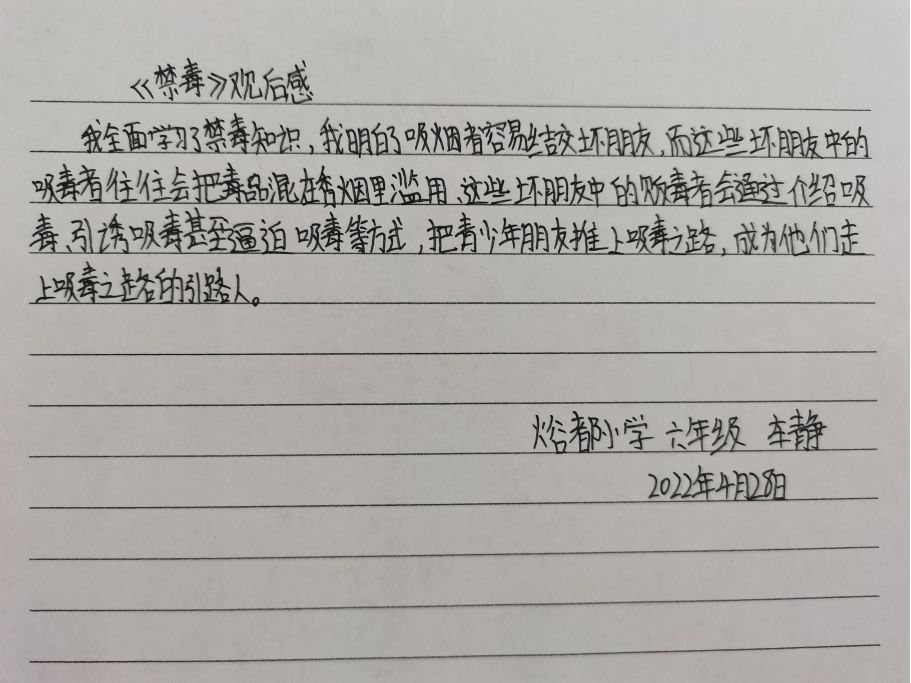 《禁毒》观后感
我全面学习了禁毒知识,我明白了吸烟者容易结交坏朋友,而这些坏朋友中的
吸毒者往往会把毒品混在香烟里滥用、这些坏朋友中的贩毒者会通过介绍吸
毒、引诱吸毒甚至逼迫吸毒等方式,把青少年朋友推上吸毒之路,成为他们走
上吸毒之路的引路人。
熔都小学 六年级 车静
2022年4月28日